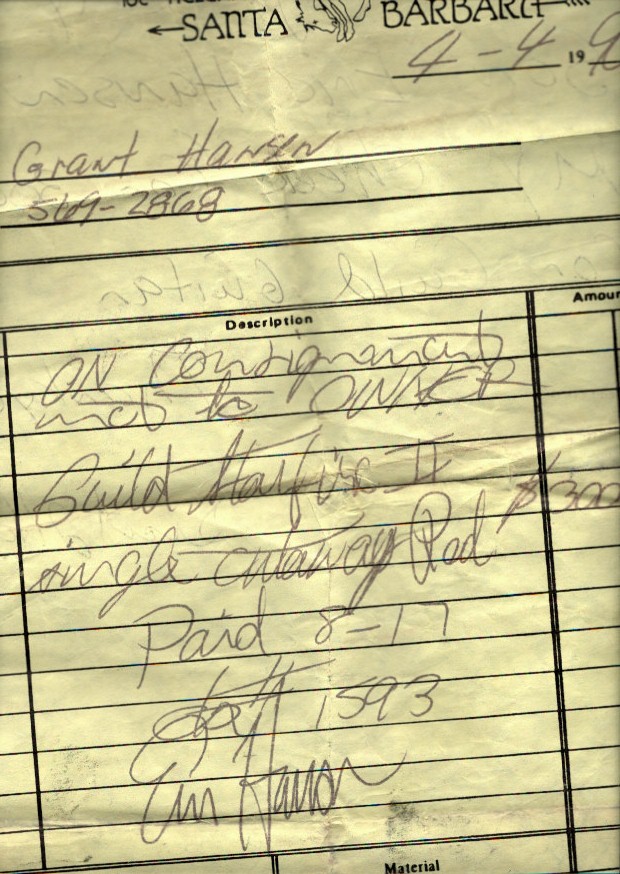 SANTA BARBARA
4-4 19 9
Grant Hansen
569-2868
Description
Amoun
ON Consignment
net to OWNER
Guild Starfire II
$300
single cutaway Red
Paid 8-17
1593
Hanson
Material